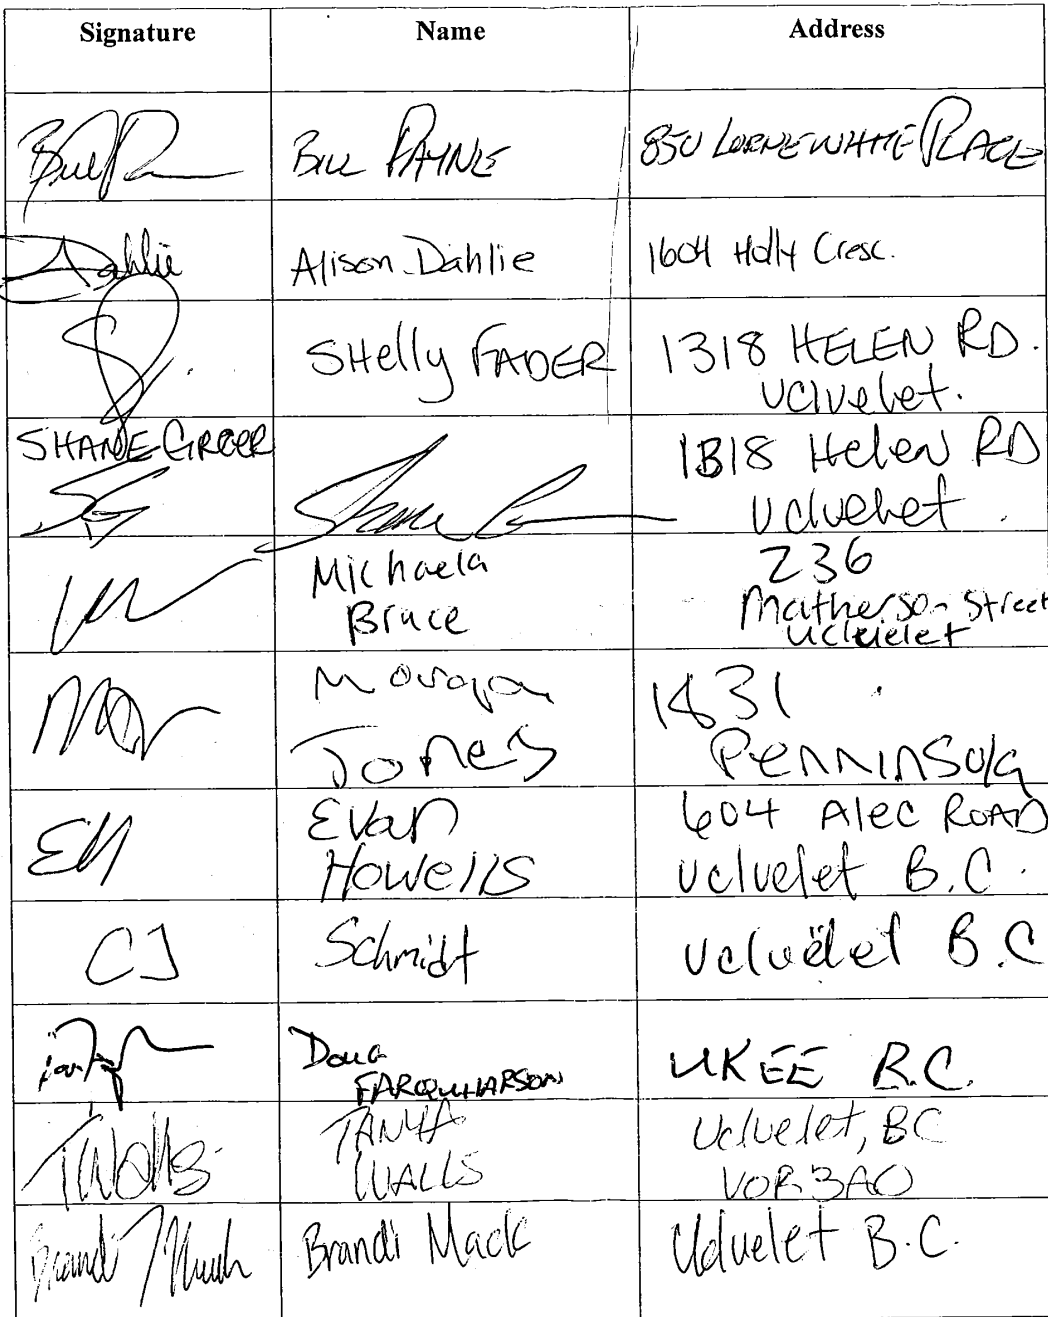 Signature Name Address
Bill PAYNE 850 LORNE WHITE PLACE
Dahlie Alison Dahlie 1604 Holly Cresc.
SHelly FADER 1318 HELEN RD.
Ucluelet.
SHANE GREER 1318 Helen RD
Shane Ucluelet.
Michaela 236
Bruce Matherson Street
Ucluelet
Morgan 1831
Jones Penninsula
EH Evan 604 Alec ROAD
Howells Ucluelet B.C.
CJ Schmidt Ucluelet B.C
Doug UKEE B.C.
FARQUHARSON
TWalls TANYA Ucluelet, BC
WALLS V0R 3A0
Brandi Mack Brandi Mack Ucluelet B.C.